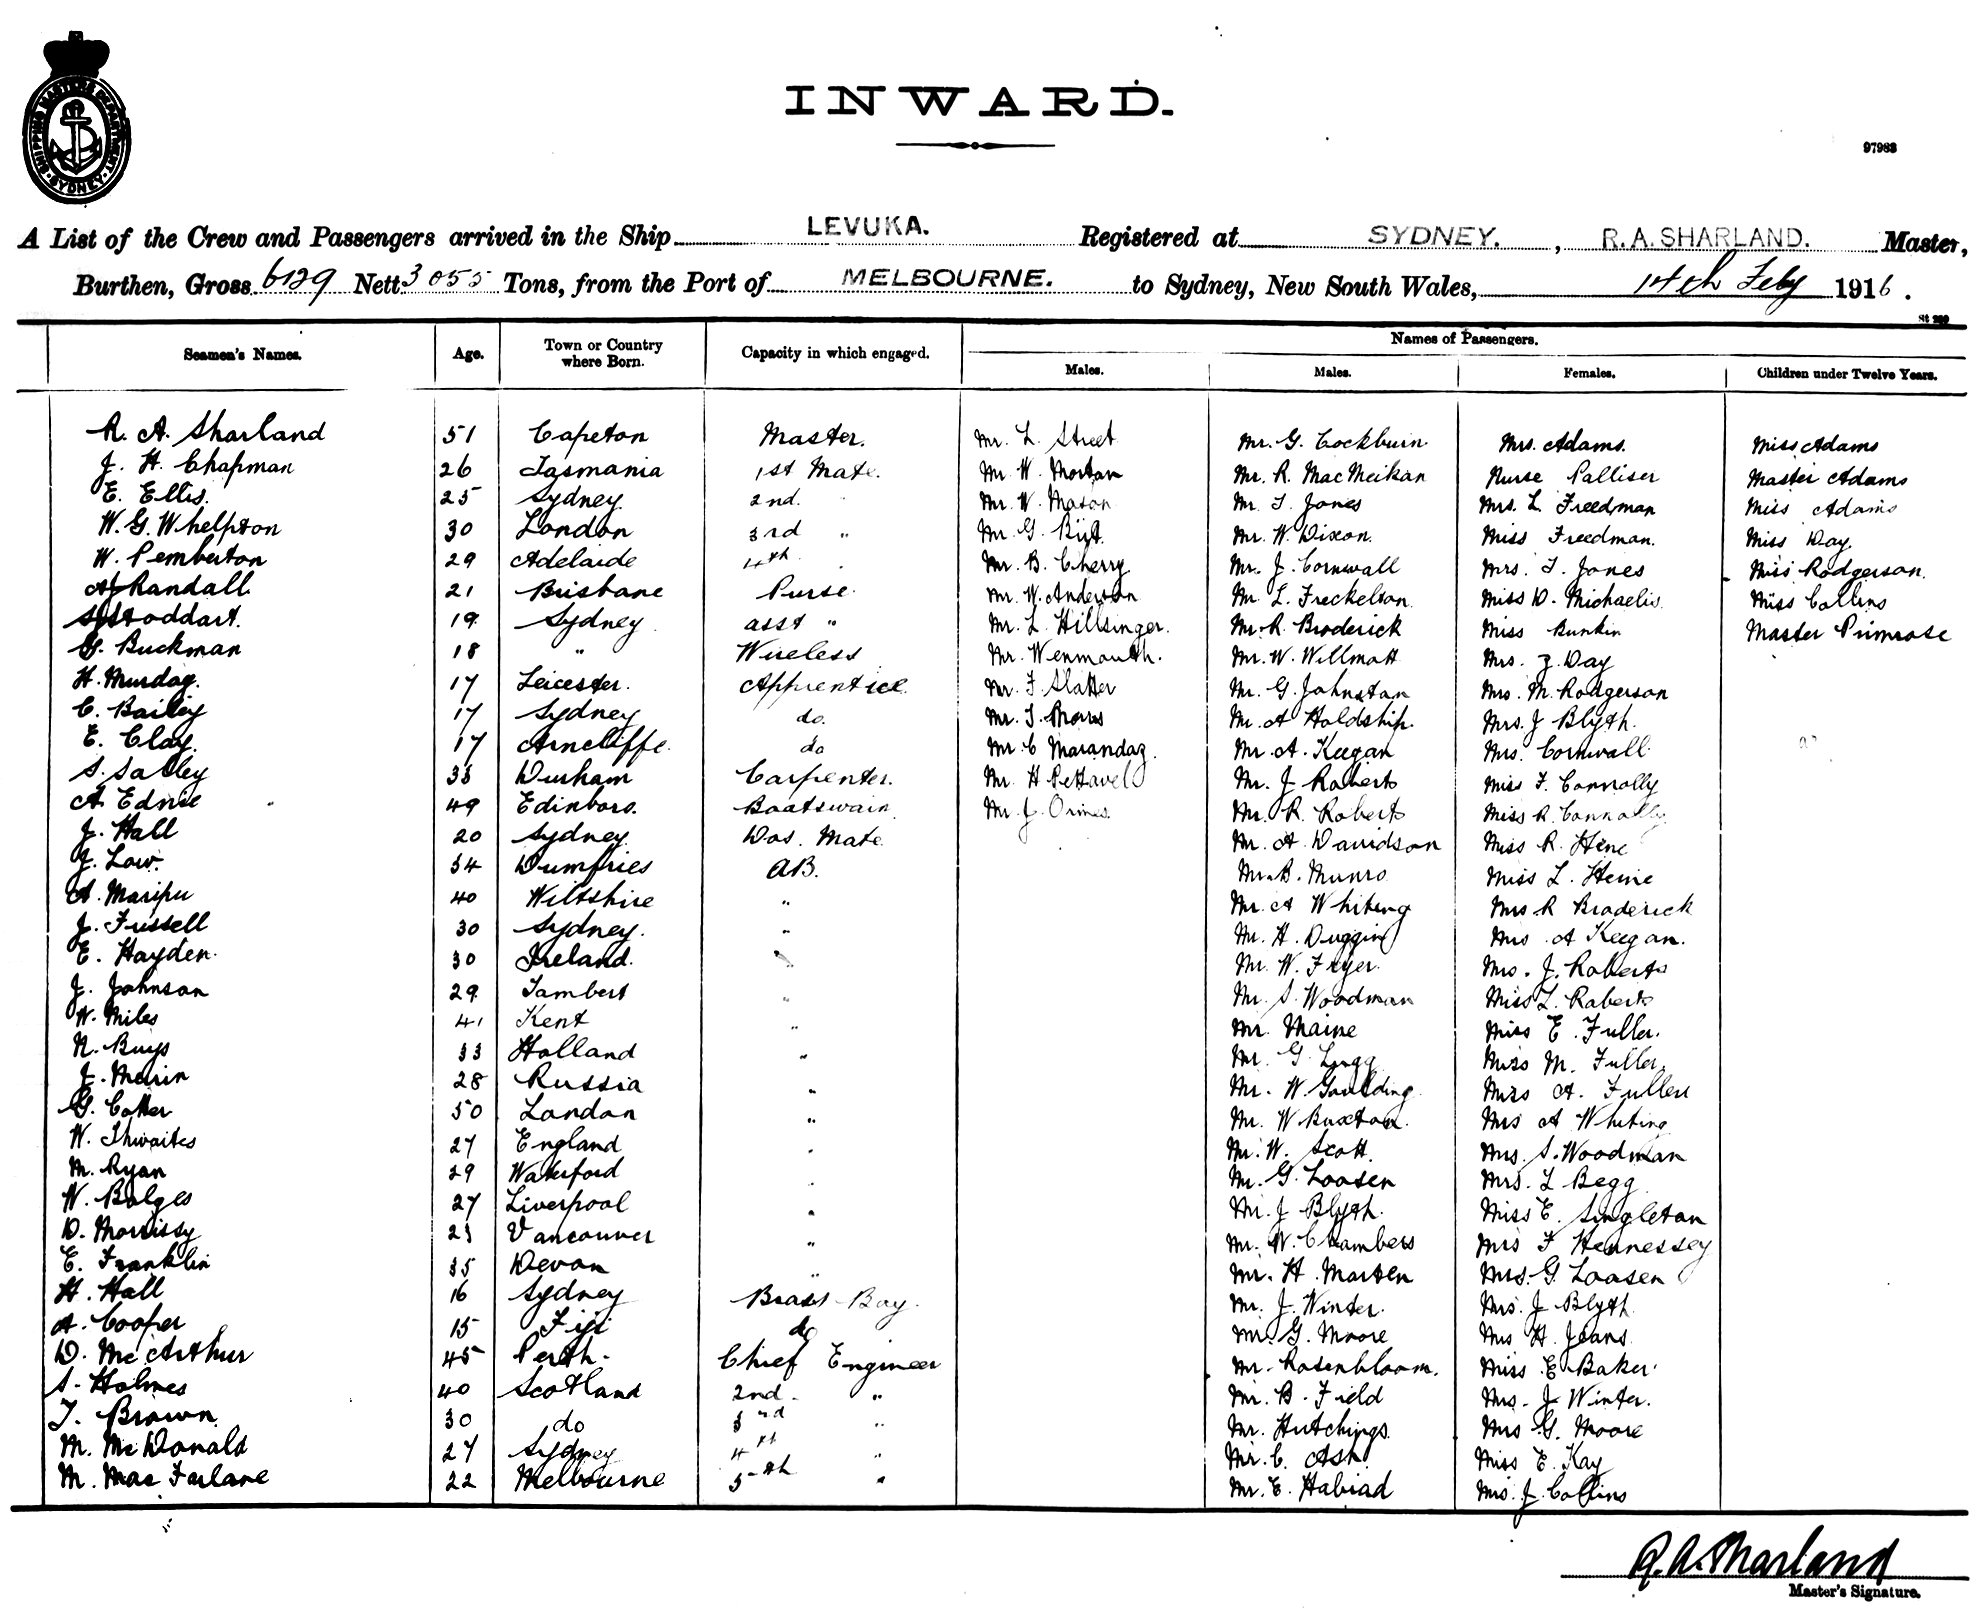 SHIPPING MASTERS DEPARTMENT. SYDNEY.
INWARD.
97983
A List of the Crew and Passengers arrived in the Ship LEVUKA. Registered at SYDNEY. , R.A. SHARLAND. Master,
Burthen, Gross 6129 Nett 3055 Tons, from the Port of MELBOURNE. to Sydney, New South Wales, 14th Feby 1916.
Seamen's Names. Age. Town or Country where Born. Capacity in which engaged. Names of Passengers.
Males. Males. Females. Children under Twelve Years.
R. A. Sharland 51 Capeton Master. Mr. L. Street Mr. G. Cockburn Mrs. Adams. Miss Adams
J. H. Chapman 26 Tasmania 1st Mate. Mr. W. Mortan Mr. R. MacMeikan Nurse Palliser Master Adams
E. Ellis. 25 Sydney 2nd. Mr. W. Mason Mr. T. Jones Mrs. L. Freedman Miss Adams
W. G. Whelpton 30 London 3rd " Mr. G. Mr. W. Dixon. Miss Freedman. Miss Day
W. Pemberton 29 Adelaide 4th Mr. B. Cherry Mr. J. Cornwall Mrs. T. Jones Miss Rodgerson.
Randall. 21 Brisbane Purse. Mr. W. Anderson Mr. L. Freckelson. Miss D. Michaelis. Miss Collins
Stoddart. 19 Sydney asst " Mr. L. Hillsinger. Mr. R. Broderick Miss Bunkin Master Primrose
G. Buckman 18 " Wireless Mr. Wenmouth. Mr. W. Willmott Mrs. Day
H. Murday. 17 Leicester. Apprentice. Mr. F. Slatter Mr. G. Johnstan Mrs. M. Rodgerson
C. Bailey 17 Sydney do. Mr. T. Mr. A Holdship. Mrs. J Blyth.
E. Clay. 17 Arncliffe. do Mr. C Marandaz. Mr. A. Keegan Mrs. Cornwall
S. 33 Durham Carpenter. Mr. H Pettavel Mr. J Roberts Miss F. Connolly
A. Ednie 49 Edinboro. Boatswain Mr. J. Mr. R. Roberts Miss R. Connolly
J. Hall 20 Sydney. Bos. Mate Mr. A. Davidson Miss R. Hine
J. Low. 34 Dumfries AB. Mr. B. Munro Miss L. Heine
A. 40 Wiltshire " Mr. A Whiting Mrs R Broderick
J. Frissell 30 Sydney. " Mr. H. Duggin Mrs A Keegan.
E. Hayden. 30 Ireland. " Mr. W. Fryer. Mrs. J. Roberts
J. Johnson 29 Tambert " Mr. S. Woodman Miss L. Roberts
W. Miles 41 Kent " Mr. Maine Miss E. Fuller.
N. Buys 33 Holland " Mr. G. Miss M. Fuller.
J. Merin 28 Russia " Mr. W. Goulding Miss A. Fuller
G. Cotter 50 London " Mr. W Buxton. Mrs A Whiting
W. Thwaites 27 England " Mr. W. Scott. Mrs. S. Woodman
M. Ryan 29 Waterford " Mr. G. Loosen Mrs. L Begg
W. Bolges 27 Liverpool " Mr. J Blyth. Miss E. Singleton
D. Morrissy 23 Vancouver " Mr. W. Chambers Mrs F Hennessey
E. Franklin 35 Devon " Mr. H. Marten Mrs. G. Loosen
H. Hall 16 Sydney Brass Boy. Mr. J. Winter. Mrs. J Blyth
A. Cooper 15 Fiji do Mr. G. Moore Mrs H. Jeans.
D. McArthur 45 Perth. Chief Engineer Mr. Rosenbloom. Miss E. Baker
S. Holmes 40 Scotland 2nd. " Mr. B. Field Mrs. J Winter.
T. Brown 30 do 3rd " Mr. Hutchings Mrs G. Moore
M. McDonald 27 Sydney 4th " Mr. C. Ash. Miss E. Kay
M. MacFarlane 22 Melbourne 5th " Mr. E. Habiad Mrs. J Collins
R. A. Sharland
Master's Signature.